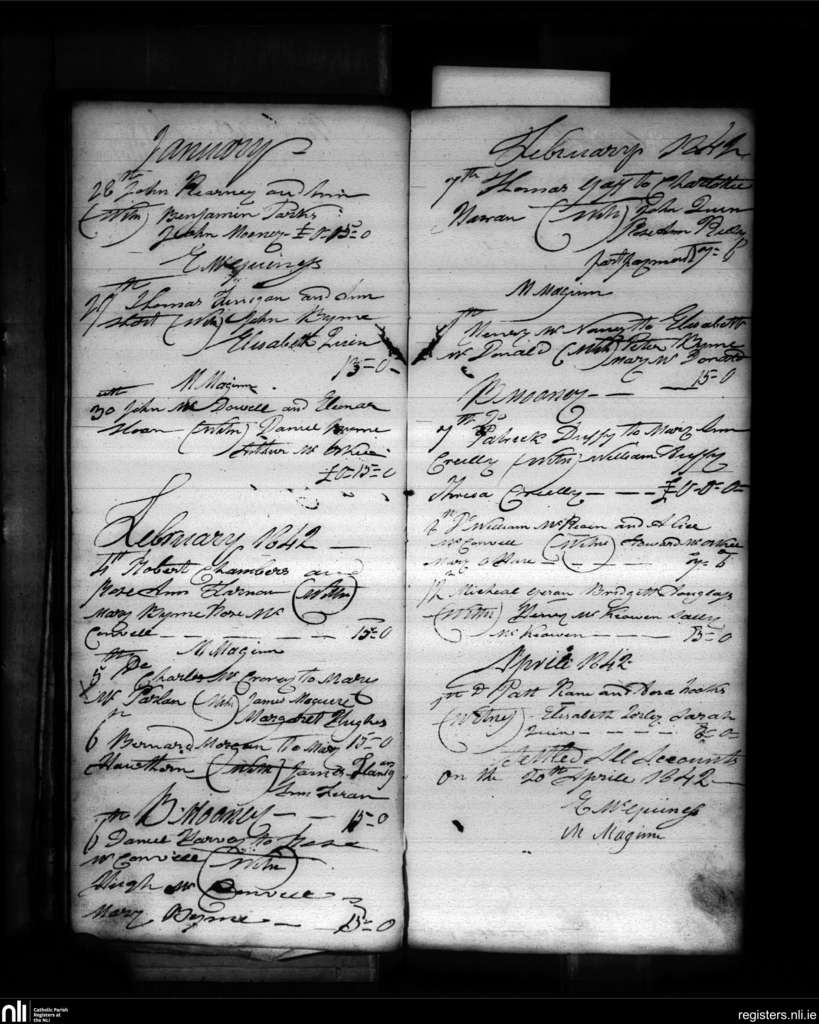 January
28th John Kearney and Ann
(Witn) Benjamin Parks
John Mooney £0-15-0
E McGuiness
29th Thomas Finigan and Ann
Short (Witn) John Byrne
Elisabeth Quin
15-0
M Maginn
30th John Mc Dowell and Eleonar
Hoar (Witn) Daniel Byrne
£0-15-0
February 1842
4th Robert Chambers and
Rose Ann Harnon (Witn)
Mary Byrne Rose Mc
Convele 15-0
M Maginn
5th De Charles Mc Crorey to Mary
Mc Parlan (Witn) James Maguire
Margaret Hughes
6 Bernard Morgan to Mary 15-0
Hawthorn (Witn) James Flanigan
Ann
B. Mooney 15-0
6th Daniel to Rose
Mc Conville (Witn)
Hugh Mc Convele
Mary Byrne 15-0
February 1842
7th Thomas Gaff to Charlotte
(Witn) John Quin
Rose Ann
part payment 7-6
M Maginn
7th Henry Mc to Elisabeth
Mc Donald (Witn) Peter Byrne
Mary Mc Donald
15-0
B Mooney
7th Do Patrick Duffy to Mary Ann
Creilly (Witn) William Duffy
Thresa Creilly £0-0-0
William Mc and Alice
Mc Convele (Witn) Edward
Mary O Hare 7-6
12 Micheal Bridgett Douglass
(Witn) Henry Mc Keowen
Mc Keowen 15-0
Aprile 1842
Patt Kane and
(Witny) Elisabeth Sarah
Quin
Settled All Accounts
on the 20th Aprile 1842
E McGuiness
M Maginn
nli
Catholic Parish
Registers at
the NLI
registers.nli.ie